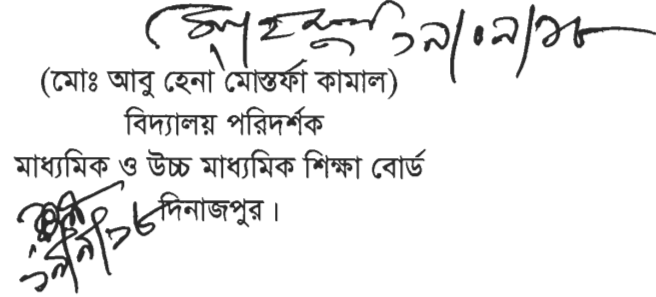 (মোঃ আবু হেনা মোস্তর্ফা কামাল)
বিদ্যালয় পরিদর্শক
মাধ্যমিক ও উচ্চ মাধ্যমিক শিক্ষা বোর্ড
দিনাজপুর।